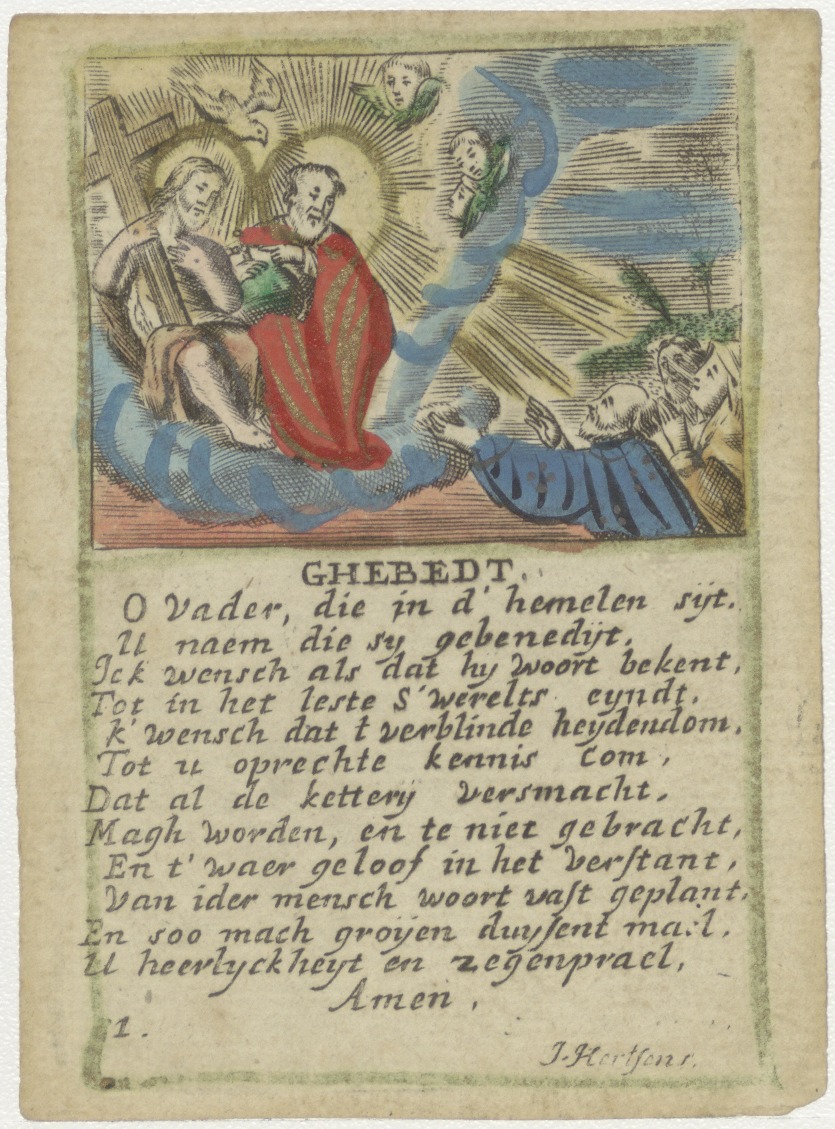 GHEBEDT.
O Vader, die in d' hemelen sijt.
U naem die sy gebenedijt.
Ick wensch als dat hy woort bekent,
Tot in het leste S'werelts eyndt.
k' wensch dat t verblinde heydendom,
Tot u oprechte kennis Com,
Dat al de ketterij versmacht.
Magh worden, en te niet gebracht,
En t' waer geloof in het Verstant,
Van ider mensch woort vast geplant.
En soo mach groijen duysent mael.
U heerlyckheyt en zegenprael,
Amen,
1.
J. Hertsens.